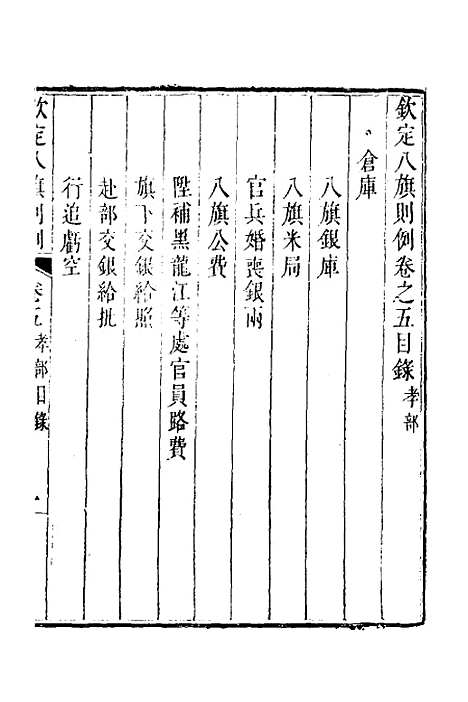 欽定八旗則例卷之五目錄 孝部
倉庫
八旗銀庫
八旗米局
官兵婚喪銀兩
八旗公費
陞補黑龍江等處官員路費
旗下交銀給照
赴部交銀給批
行追虧空
欽定八旗則例 卷五孝部目錄 一